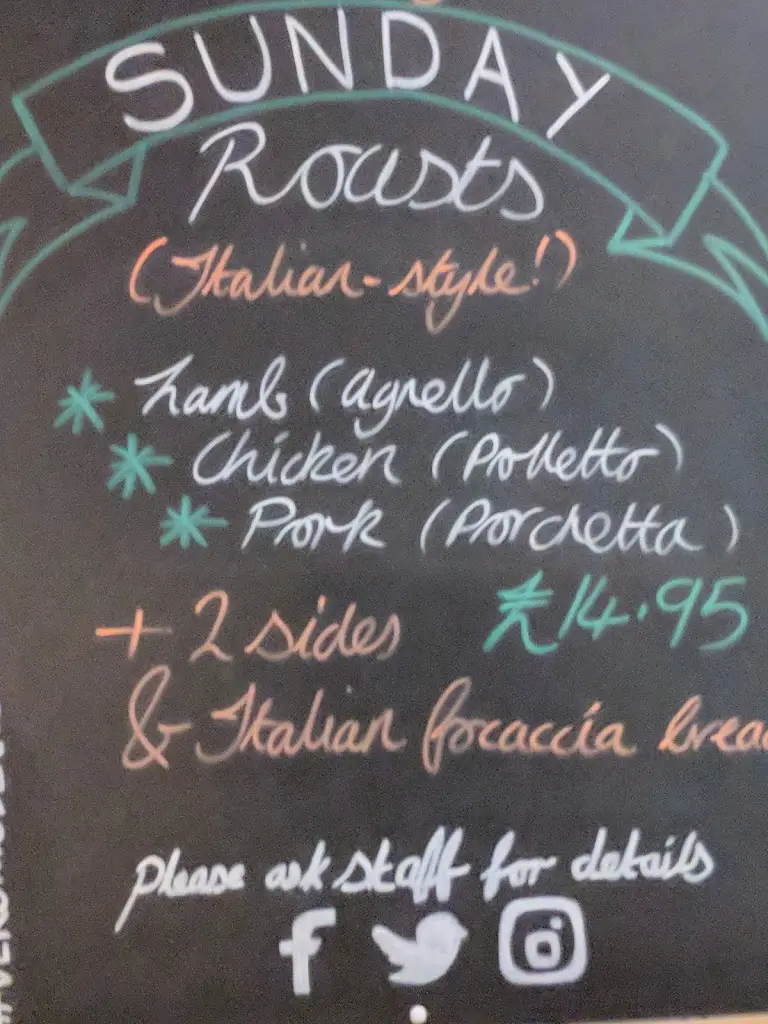 SUNDAY
Roasts
(Italian-style!)
* Lamb (agnello)
* Chicken (Polletto)
* Pork (Porchetta)
+ 2 sides £14.95
& Italian focaccia brea
please ask staff for details